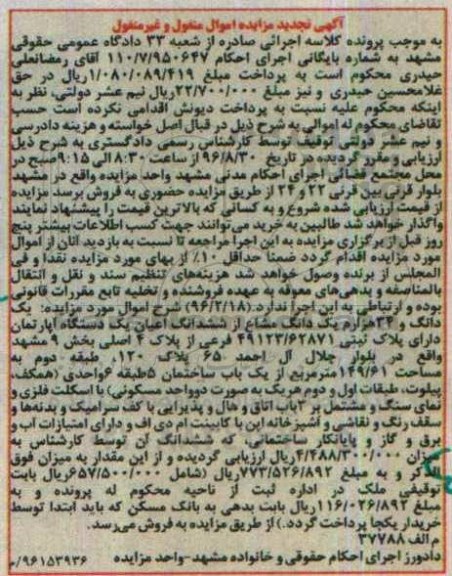 آگهی تجدید مزایده اموال منقول و غیرمنقول
به موجب پرونده کلاسه اجرائی صادره از شعبه ۳۳ دادگاه عمومی حقوقی
مشهد به شماره بایگانی اجرای احکام ۱۱۰/۷/۹۵۰۶۴۷ آقای رمضانعلی
حیدری محکوم است به پرداخت مبلغ ۱/۰۸۰/۰۸۹/۴۱۹ریال در حق
غلامحسین حیدری و نیز مبلغ ۲۲/۷۰۰/۰۰۰ریال نیم عشر دولتی، نظر به
اینکه محکوم علیه نسبت به پرداخت دیونش اقدامی نکرده است حسب
تقاضای محکوم له اموالی به شرح ذیل در قبال اصل خواسته و هزینه دادرسی
و نیم عشر دولتی توقیف توسط کارشناس رسمی دادگستری به شرح ذیل
ارزیابی و مقرر گردیده در تاریخ ۹۶/۸/۳۰ از ساعت ۸:۳۰ الی ۹:۱۵صبح در
محل مجتمع قضائی اجرای احکام مدنی مشهد واحد مزایده واقع در مشهد
بلوار قرنی بین قرنی ۲۲ و ۲۴ از طریق مزایده حضوری به فروش برسد مزایده
از قیمت ارزیابی شده شروع و به کسانی که بالاترین قیمت را پیشنهاد نمایند
واگذار خواهد شد طالبین به خرید می‌توانند جهت کسب اطلاعات بیشتر پنج
روز قبل از برگزاری مزایده به این اجرا مراجعه تا نسبت به بازدید آنان از اموال
مورد مزایده اقدام گردد ضمنا حداقل ۱۰٪ از بهای مورد مزایده نقدا و فی
المجلس از برنده وصول خواهد شد هزینه‌های تنظیم سند و نقل و انتقال
بالمناصفه و بدهی‌های معوقه به عهده فروشنده و تخلیه تابع مقررات قانونی
بوده و ارتباطی به این اجرا ندارد.(۹۶/۲/۱۸) شرح اموال مورد مزایده: یک
دانگ و ۳۴هزارم یک دانگ مشاع از ششدانگ اعیان یک دستگاه آپارتمان
دارای پلاک ثبتی ۴۹۱۲۳/۶۲۸۷۱ فرعی از پلاک ۴ اصلی بخش ۹ مشهد
واقع در بلوار جلال آل احمد ۶۵ پلاک ۱۲۰، طبقه دوم به
مساحت ۱۴۹/۶۱مترمربع از یک باب ساختمان ۵طبقه ۶واحدی (همکف،
پیلوت، طبقات اول و دوم هریک به صورت دوواحد مسکونی) با اسکلت فلزی و
نمای سنگ و مشتمل بر ۳باب اتاق و هال و پذیرایی با کف سرامیک و بدنه‌ها و
سقف رنگ و نقاشی و آشپزخانه اپن با کابینت ام دی اف و دارای امتیازات آب و
برق و گاز و پایانکار ساختمانی، که ششدانگ آن توسط کارشناس به
میزان ۴/۴۸۸/۳۰۰/۰۰۰ریال ارزیابی گردیده و از این مقدار به میزان فوق
الذکر و به مبلغ ۷۷۳/۵۲۶/۸۹۲ریال (شامل ۶۵۷/۵۰۰/۰۰۰ریال بابت
توقیفی ملک در اداره ثبت از ناحیه محکوم له پرونده و به
مبلغ ۱۱۶/۰۲۶/۸۹۲ریال بابت بدهی به بانک مسکن که باید ابتدا توسط
خریدار یکجا پرداخت گردد.) از طریق مزایده به فروش می‌رسد.
م الف ۳۷۷۸۸
دادورز اجرای احکام حقوقی و خانواده مشهد-واحد مزایده ۹۶۱۵۳۹۳۶/م